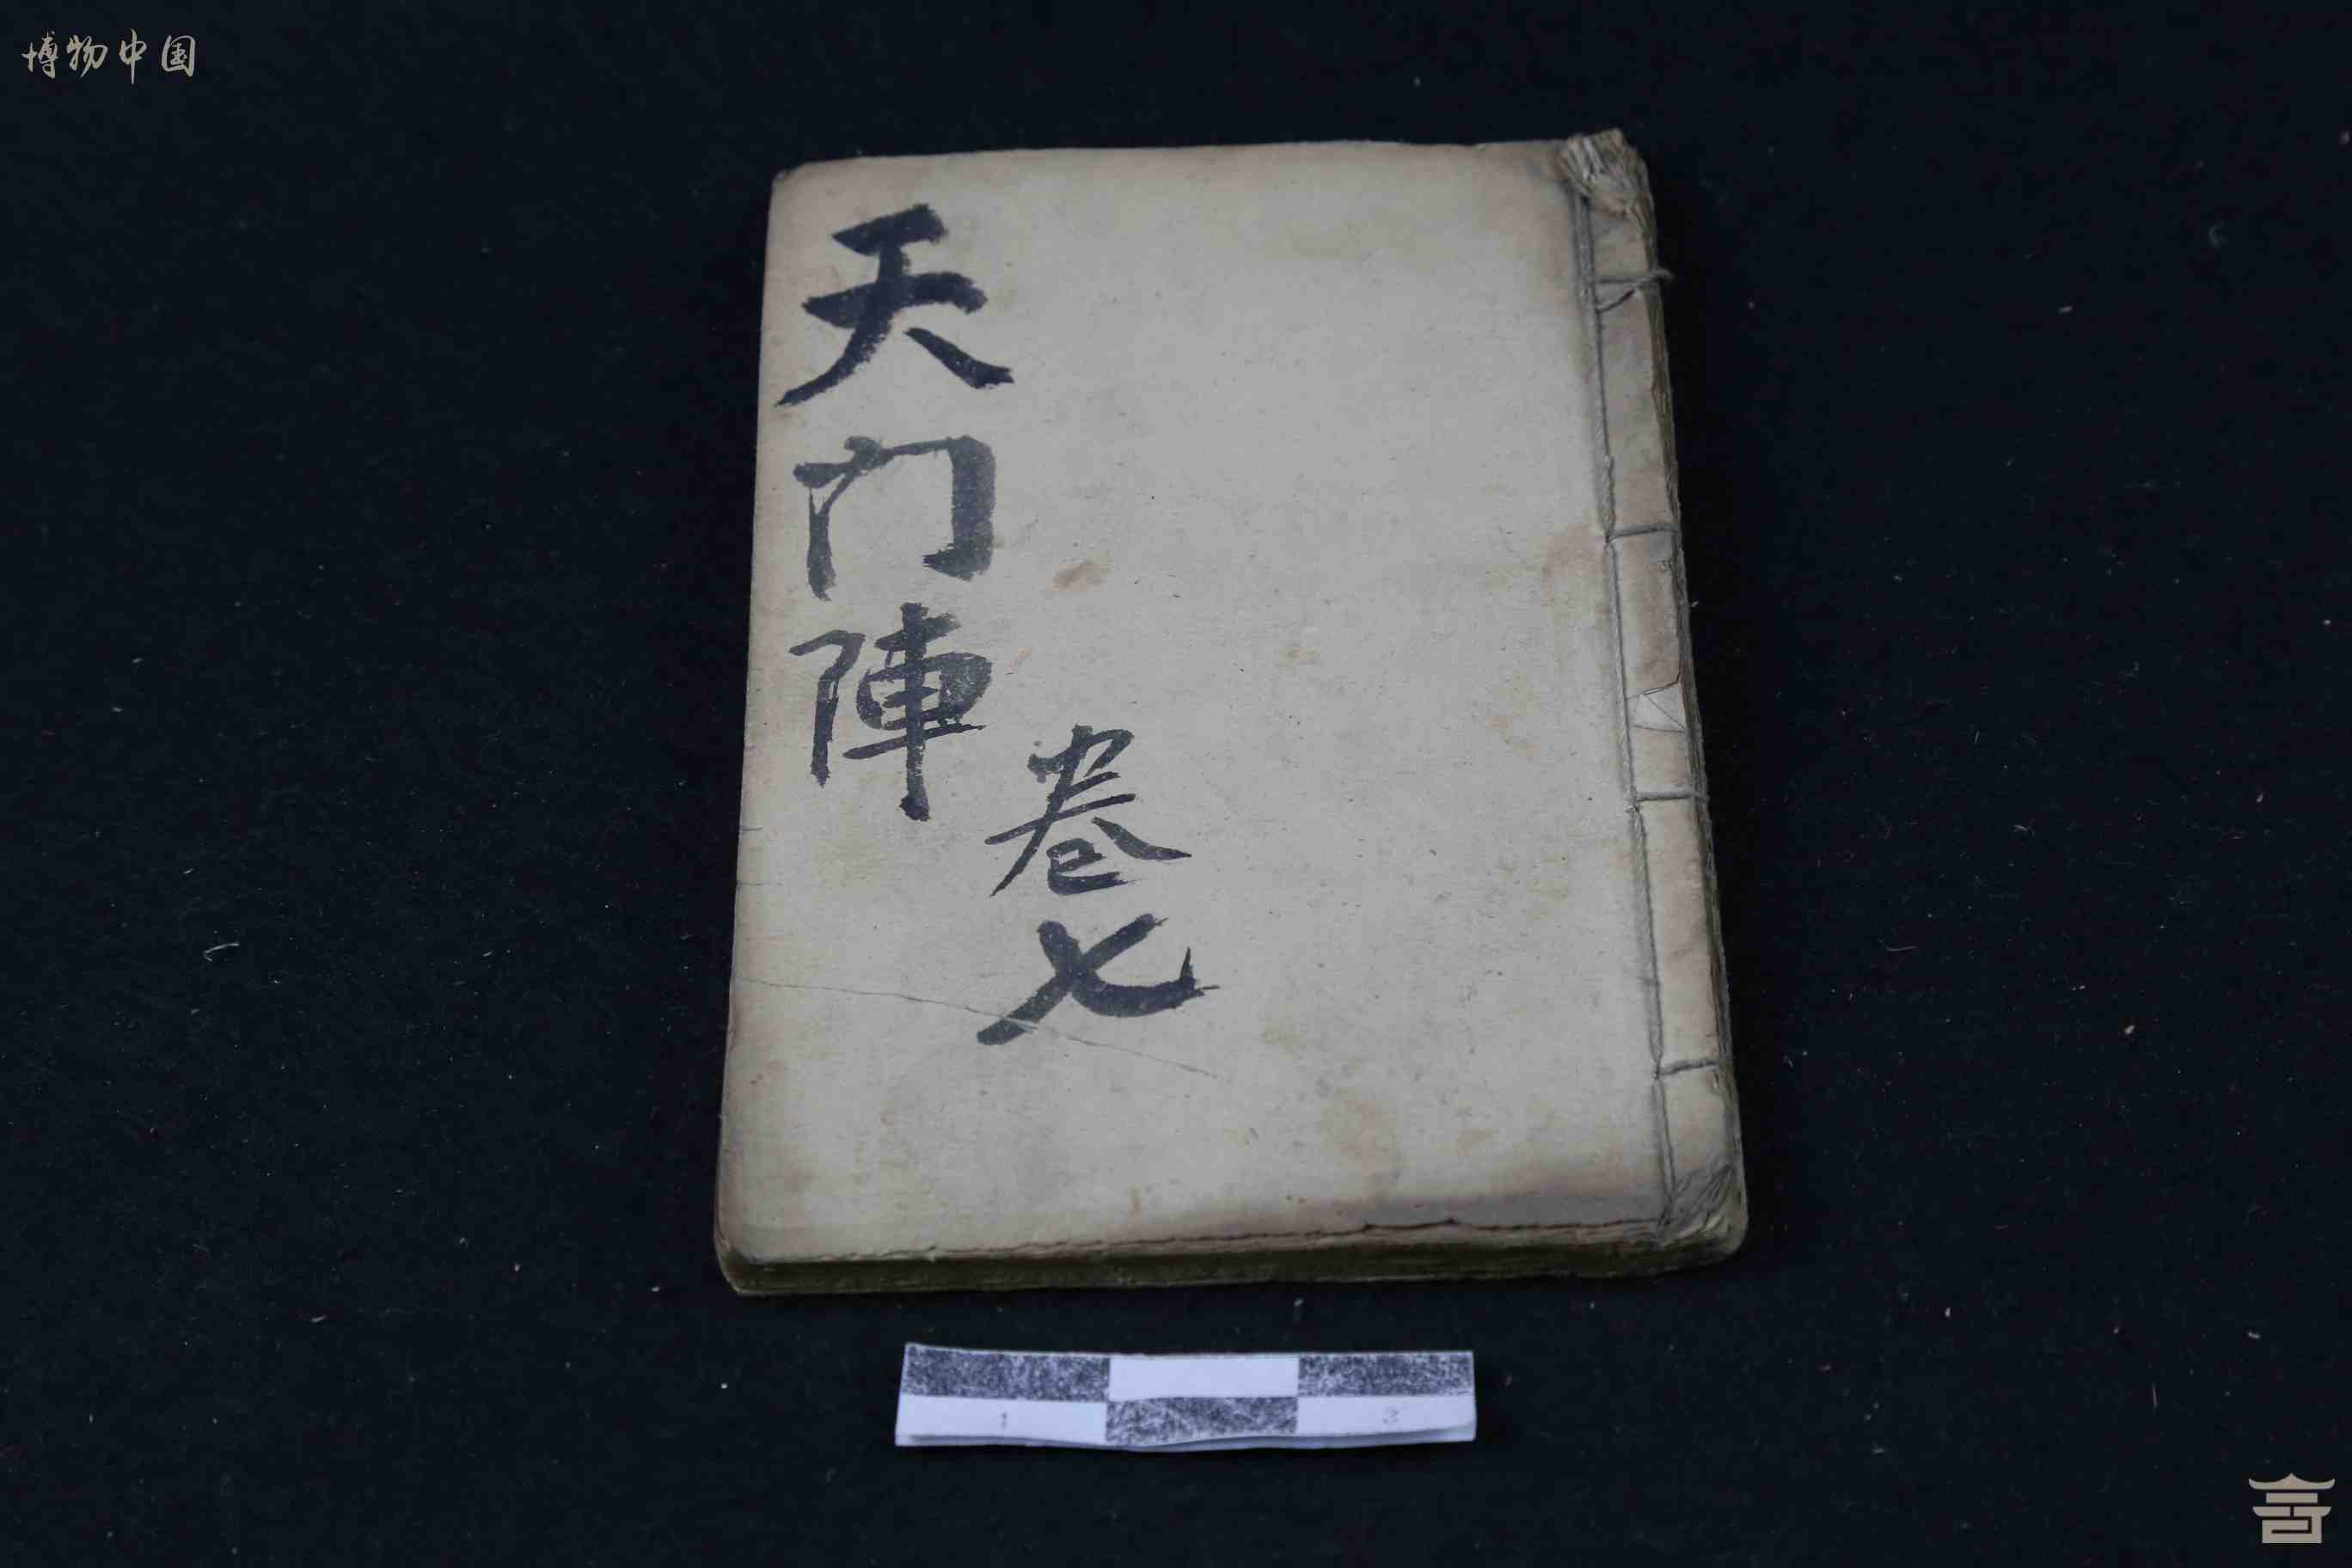 博物中国
天门陣
卷七
1
3